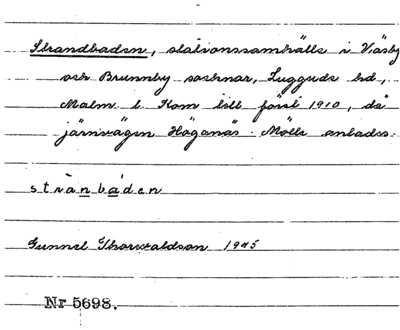 Strandbaden, stationssamhälle i Väsby
och Brunnby socknar, Luggude hd,
Malm. l. Kom till först 1910, då
järnvägen Höganäs - Mölle anlades.
strànbáden
Gunnel Thorvaldson 1945
Nr 5698.